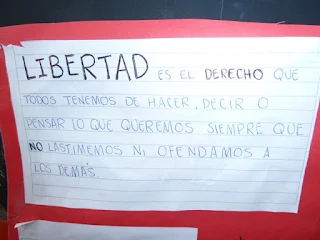 LIBERTAD ES EL DERECHO QUE
TODOS TENEMOS DE HACER, DECIR O
PENSAR LO QUE QUEREMOS SIEMPRE QUE
NO LASTIMEMOS NI OFENDAMOS A
LOS DEMÁS.